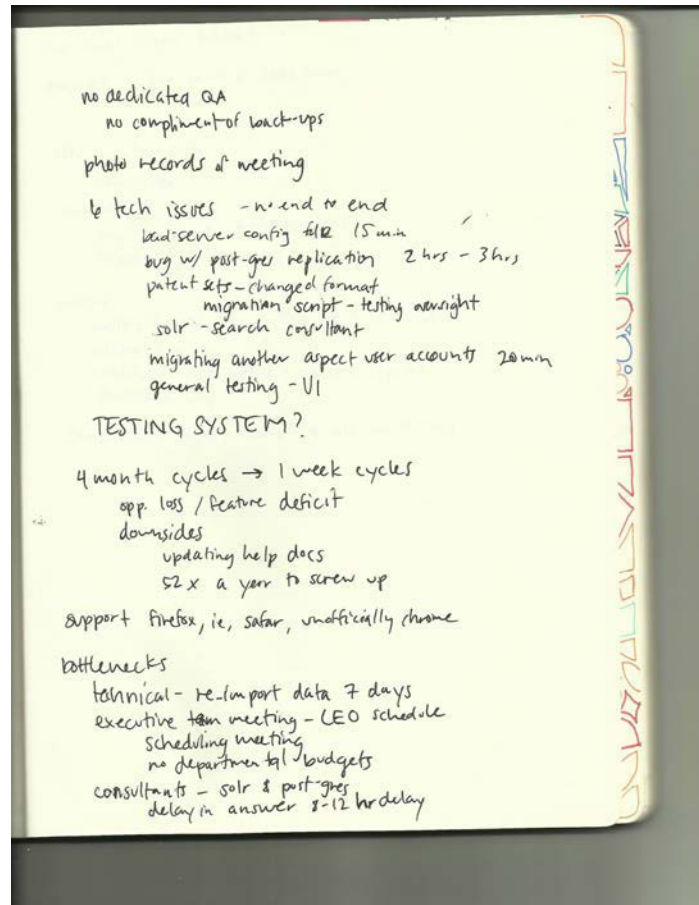 no dedicated QA
no compliment of back-ups
photo records of meeting
6 tech issues - no end to end
bad-server config file 15 min
bug w/ post-gres replication 2 hrs - 3 hrs
patent sets - changed format
migration script - testing oversight
solr - search consultant
migrating another aspect user accounts 20 min
general testing - UI
TESTING SYSTEM?
4 month cycles → 1 week cycles
opp. loss / feature deficit
downsides
updating help docs
52 x a year to screw up
support firefox, ie, safar, unofficially chrome
bottlenecks
tehnical - re-import data 7 days
executive team meeting - CEO schedule
scheduling meeting
no departmental budgets
consultants - solr & post-gres
delay in answer 8-12 hr delay